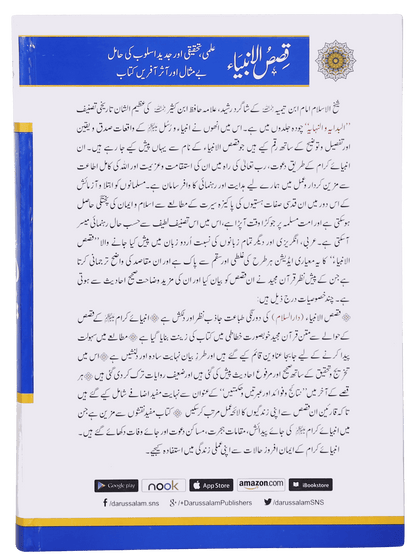 قصص الانبیاء
علمی، تحقیقی اور جدید اسلوب کی حامل
بے مثال اور آثر آفریں کتاب
شیخ الاسلام امام ابن تیمیہ کے شاگرد رشید، علامہ حافظ ابن کثیر کی عظیم الشان تاریخی تصنیف
"البدایہ والنہایہ" چودہ جلدوں میں ہے۔ اس میں انھوں نے انبیاء و رسل کے واقعات صدق و یقین
اور تفصیل و توضیح کے ساتھ رقم کیے ہیں جو قصص الانبیاء کے نام سے یہاں پیش کیا جا رہے ہیں۔ ان
انبیائے کرام کے طریق دعوت، رب تعالیٰ کی راہ میں ان کی استقامت و عزیمت اور اللہ کی کامل اطاعت
سے مزین کردار و عمل میں ہمارے لیے ہدایت اور رہنمائی کا وافر سامان ہے۔ مسلمانوں کو ابتلا و آزمائش
کے اس دور میں ان قدسی صفات ہستیوں کی پاکیزہ سیرت کے مطالعے سے اسلام و ایمان کی پختگی حاصل
ہو سکتی ہے اور امت مسلمہ پر جو کڑا وقت آپڑا ہے، اس میں اس تصنیف لطیف سے حسب حال رہنمائی میسر
آ سکتی ہے۔ عربی، انگریزی اور دیگر تمام زبانوں کی نسبت اُردو زبان میں پیش کیا جانے والا "قصص
الانبیاء" کا یہ معیاری ایڈیشن ہر طرح کی غلطی اور سقم سے پاک ہے اور ان مقاصد کی واضح ترجمانی کرتا
ہے جن کے پیش نظر قرآن مجید نے ان قصص کو بیان کیا اور ان کی مزید وضاحت صحیح احادیث سے ہوتی
ہے۔ چند خصوصیات درج ذیل ہیں:
قصص الانبیاء (دارالسلام) کی دو رنگی طباعت جاذب نظر اور دلکش ہے انبیائے کرام کے قصص
کے حوالے سے متن قرآن مجید خوبصورت خطاطی میں کتاب کی زینت بنایا گیا ہے مطالعے میں سہولت
پیدا کرنے کے لیے جابجا عناوین قائم کیے گئے ہیں اور طرز بیان نہایت سادہ اور دلنشیں ہے اس میں
تخریج و تحقیق کے ساتھ صحیح اور مرفوع احادیث پیش کی گئی ہیں اور ضعیف روایات ترک کر دی گئی ہیں ہر
قصے کے آخر میں "نتائج و فوائد اور عبرتیں و حکمتیں" کے عنوان سے نہایت مفید اضافے شامل کیے گئے ہیں
تا کہ قارئین ان قصص سے اپنی زندگیوں کا لائحہ عمل مرتب کر سکیں کتاب مفید نقشوں سے مزین ہے جن
میں انبیائے کرام کی جائے پیدائش، مقامات ہجرت، مساکن دعوت اور جائے وفات دکھائے گئے ہیں۔
انبیائے کرام کے ایمان افروز حالات سے اپنی عملی زندگی میں استفادہ کیجیے۔
Google play nook App Store amazon.com iBookstore
/darussalam.sns /+DarussalamPublishers /darussalamSNS